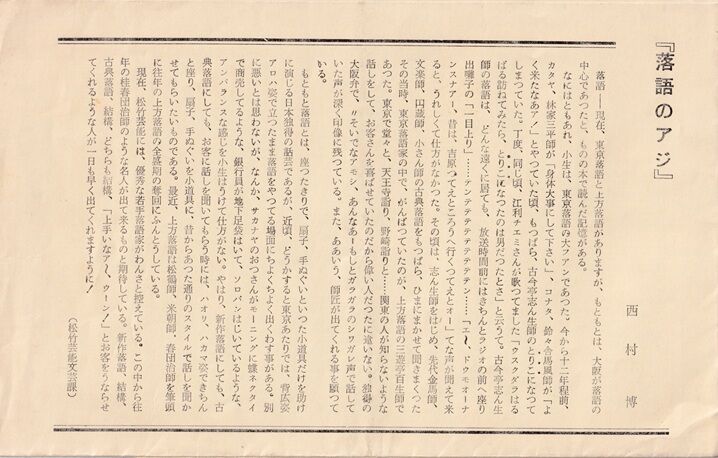 『落語のアジ』
西村 博
落語――現在、東京落語と上方落語がありますが、もともとは、大阪が落語の
中心であつたと、ものの本で読んだ記憶がある。
なにはともあれ、小生は、東京落語の大フアンであつた。今から十二年程前、
カタヤ、林家三平師が「身体大事にして下さい」、コナタ、鈴々舎馬風師が「よ
く来たなあアノ」とやつていた頃、もつぱら、古今亭志ん生師のとりこになつて
しまつていた。丁度、同じ頃、江利チエミさんが歌つてました「ウスクダラはる
ばる訪ねてみたら、とりこになつたのは男だつたとさ」と云うて。古今亭志ん生
師の落語は、どんな遠くに居ても、放送時間前にはきちんとラジオの前へ座り
出囃子の「一日上り」……テンテテテテテテテン……「エ〜、ドウモオーナ
ンスナアー、昔は、吉原つてえところうへ行くつてえとオー」てな声が聞えて来
ると、うれしくて仕方がなかつた。その頃は、志ん生師をはじめ、先代金馬師、
文楽師、円蔵師、小さん師の古典落語をもつぱら、ひまにまかせて聞きまくつた
その当時、東京落語家の中で、がんばつていたのが、上方落語の三遊亭百生師で
あつた。東京で堂々と、天王寺詣り、野崎詣りと……関東の人が知らないような
話しをして、お客さんを喜ばせていたのだから偉い人だつたに違いない。独得の
大阪弁で、〃そいでなアモシ、あんなあーもしとガラガラのシワガレ声で話して
いた声が深く印像に残つている。また、ああいう、師匠が出てくれる事を願つて
いる。
もともと落語とは、座つたきりで、扇子、手ぬぐいといつた小道具だけを助け
に演じる日本独得の話芸であるが、近頃、どうかすると東京あたりでは、背広姿
アロハ姿で立つたまま落語をやつてる場面にちよくちよく出くわす事がある。別
に悪いとは思わないが、なんか、サカナヤのおつさんがモーニングに蝶ネクタイ
で商売してるような、銀行員が地下足袋はいて、ソロバンはじいているような、
アンバランスな感じを小生はうけて仕方がない。やはり、新作落語にしても、古
典落語にしても、お客に話しを聞いてもらう時には、ハオリ、ハカマ姿できちん
と座り、扇子、手ぬぐいを小道具に、昔からあつた通りのスタイルで話しを聞か
せてもらいたいものである。最近、上方落語は松鶴師、米朝師、春団治師を筆頭
に往年の上方落語の全盛期の奪回にふんとうしている。
現在、松竹芸能には、優秀な若手落語家がわんさと控えている。この中から往
年の桂春団治師のような名人が出て来るものと期待している。新作落語、結構、
古典落語、結構、どちらも結構、「上手いなア〜、ウーン！」とお客をうならせ
てくれるような人が一日も早く出てくれますように！
（松竹芸能文芸課）